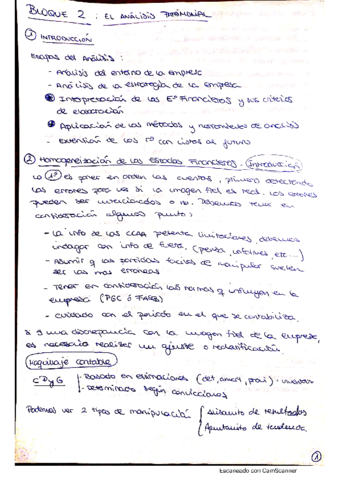 BLOQUE 2: EL ANÁLISIS PATRIMONIAL
① INTRODUCCIÓN
Etapas del Análisis:
- Análisis del entorno de la empresa
- Análisis de la estrategia de la empresa
Interpretación de los Eº Financieros y sus criterios
de elaboración
Aplicación de los métodos y herramientas de análisis
- extensión de los rº con vistas al futuro
② Homogeneización de los Estados Financieros. Introducción
Lo 1º es poner en orden las cuentas, primero detectando
los errores para ver si la imagen fiel es real. Los errores
pueden ser intencionados o no. Debemos tener en
consideración algunos puntos:
- La info de las CCAA presenta limitaciones, debemos
indagar con info de fuera. (prensa, informes, etc...)
- Asumir q las partidas fáciles de manipular suelen
ser las más erróneas
- Tener en consideración las normas q influyen en la
empresa (PGC ó FASB)
- cuidado con el periodo en el que se contabiliza.
Si q una discrepancia con la imagen fiel de la empresa,
es necesario realizar un ajuste o reclasificación.
Maquillaje contable
CPyG
- Basado en estimaciones (det, amort, provi)
- Determinado según convicciones
Podemos ver 2 tipos de manipulación
Alisamiento de resultados
Apuntamiento de tendencia.
①
Escaneado con CamScanner